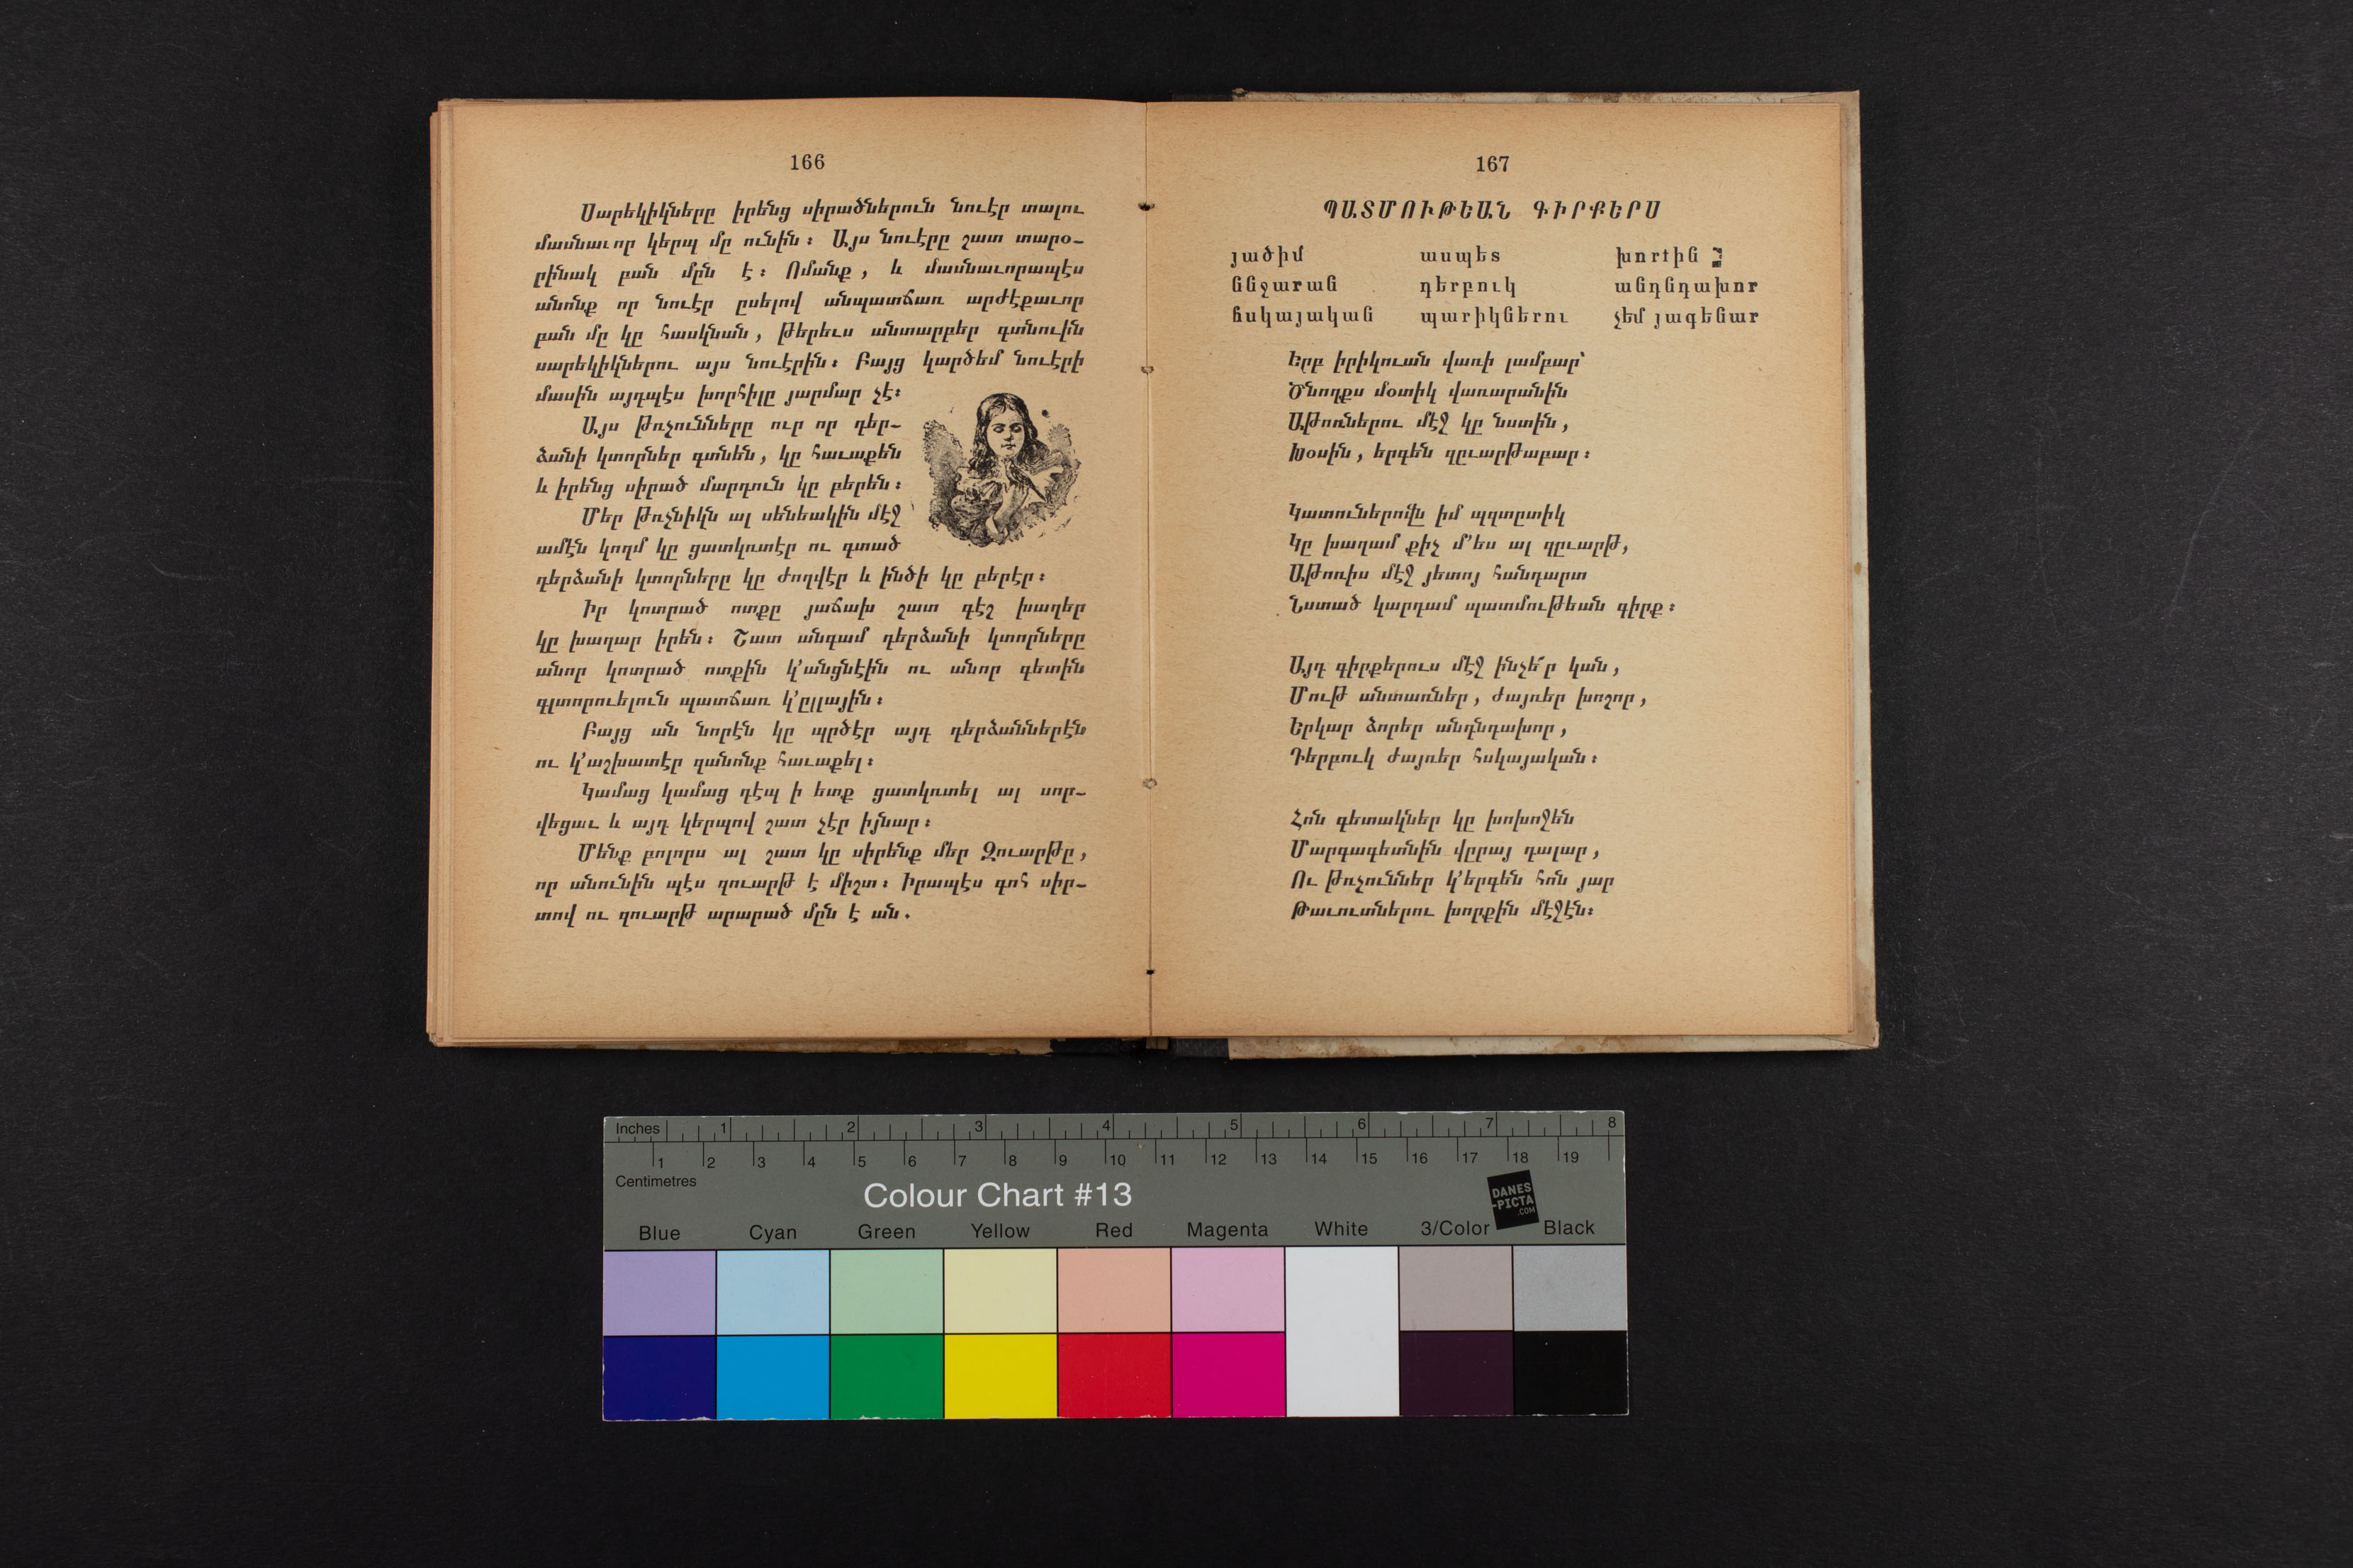 166
Սարեկիկները իրենց սիրածներուն նուէր տալու
մասնաւոր կերպ մը ունին։ Այս նուէրը շատ տարօ-
րինակ բան մըն է։ Ոմանք, և մասնաւորապէս
անոնք որ նուէր ըսելով անպատճառ արժէքաւոր
բան մը կը հասկնան, թերեւս անտարբեր գտնուին
սարեկիկներու այս նուէրին։ Բայց կարծեմ նուէրի
մասին այդպէս խորհիլը յարմար չէ։
Այս թռչունները ուր որ դեր-
ձանի կտորներ գտնեն, կը հաւաքեն
և իրենց սիրած մարդուն կը բերեն։
Մեր թռչնիկն ալ սենեակին մէջ
ամէն կողմ կը ցատկռտէր ու գտած
դերձանի կտորները կը ժողվէր և ինծի կը բերէր։
Իր կոտրած ոտքը յաճախ շատ գէշ խաղեր
կը խաղար իրեն։ Շատ անգամ դերձանի կտորները
անոր կոտրած ոտքին կ՚անցնէին ու անոր գետին
գլտորուելուն պատճառ կ՚ըլլային։
Բայց ան նորէն կը պրծէր այդ դերձաններէն
ու կ՚աշխատէր զանոնք հաւաքել։
Կամաց կամաց դէպ ի ետք ցատկռտել ալ սոր-
վեցաւ և այդ կերպով շատ չէր իյնար։
Մենք բոլորս ալ շատ կը սիրենք մեր Զուարթը,
որ անունին պէս զուարթ է միշտ։ Իրապէս գոհ սիր-
տով ու զուարթ արարած մըն է ան.
167
ՊԱՏՄՈՒԹԵԱՆ ԳԻՐՔԵՐՍ
յածիմ ասպետ խորտին
ննջարան դերբուկ անդնդախոր
հսկայական պարիկներու չեմ յագենար
Երբ իրիկուան վառի լամբար՝
Ծնողքս մօտիկ վառարանին
Աթոռներու մէջ կը նստին,
Խօսին, երգեն զըւարթաբար։
Կատուներովն իմ պզտըտիկ
Կը խաղամ քիչ մ՚ես ալ զըւարթ,
Աթոռիս մէջ յետոյ հանդարտ
Նստած կարդամ պատմութեան գիրք։
Այդ գիրքերուս մէջ ինչե՜ր կան,
Մութ անտառներ, ժայռեր խոշոր,
Երկար ձորեր անդնդախոր,
Դերբուկ ժայռեր հսկայական։
Հոն գետակներ կը խոխոջեն
Մարգագետնին վըրայ դալար,
Ու թռչուններ կ՚երգեն հոն յար
Թաւուտներու խորքին մէջէն։
Inches 1 2 3 4 5 6 7 8
1 2 3 4 5 6 7 8 9 10 11 12 13 14 15 16 17 18 19
Centimetres
Colour Chart #13
DANES
-PICTA
.COM
Blue Cyan Green Yellow Red Magenta White 3/Color Black